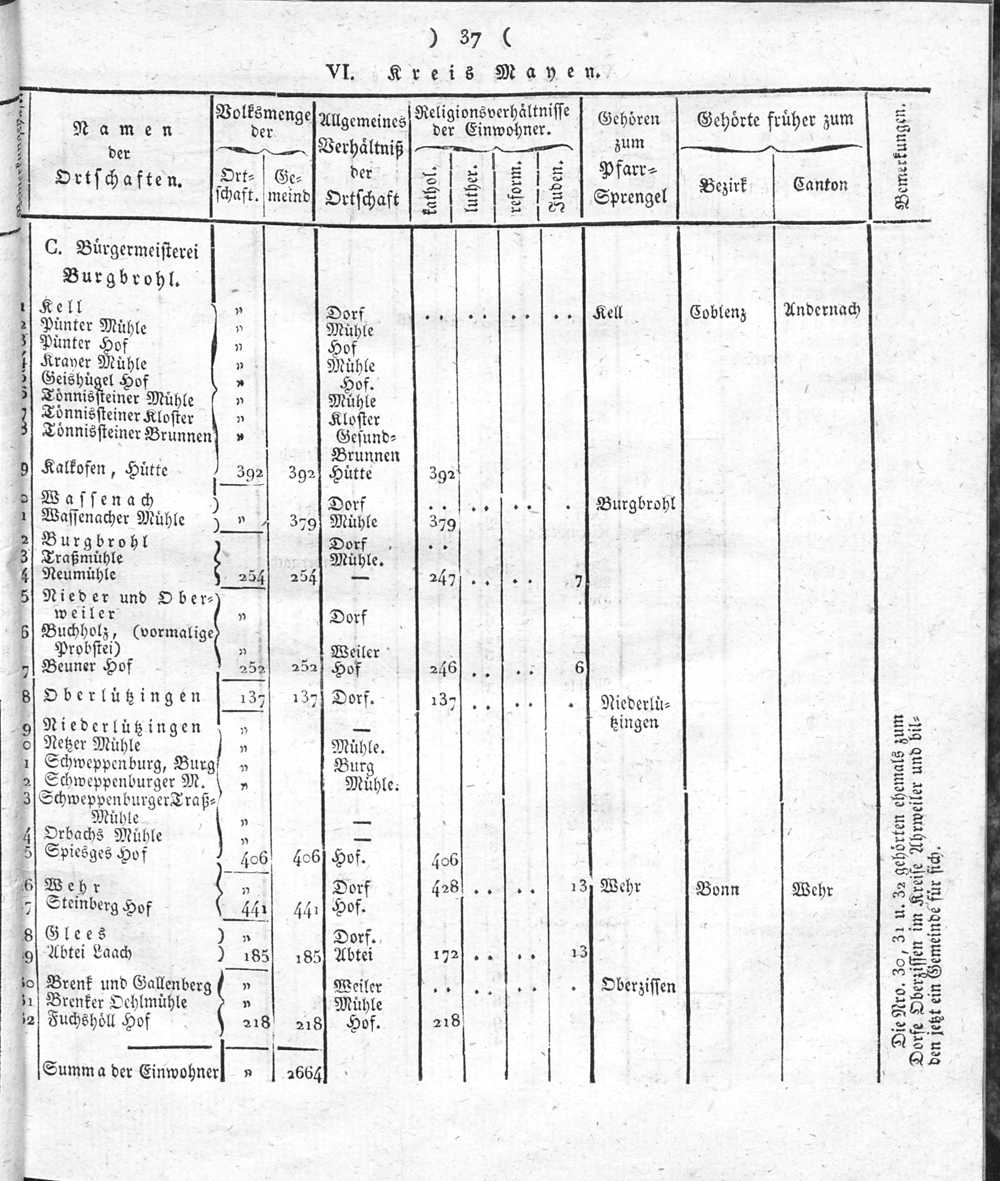 ) 37 (
VI. Kreis Mayen.
Namen der Ortschaften. Volksmenge der Ortschaft. Gemeind Allgemeines Verhältniß der Ortschaft Religionsverhältnisse der Einwohner. kathol. luther. reform. Juden. Gehören zum Pfarr-Sprengel Gehörte früher zum Bezirk Canton Bemerkungen.
C. Bürgermeisterei
Burgbrohl.
1 Kell „ Dorf .. .. .. .. Kell Coblenz Andernach
2 Pünter Mühle „ Mühle
3 Pünter Hof „ Hof
4 Krayer Mühle „ Mühle
5 Geishügel Hof „ Hof.
6 Tönnissteiner Mühle „ Mühle
7 Tönnissteiner Kloster „ Kloster
8 Tönnissteiner Brunnen „ Gesund-
Brunnen
9 Kalkofen, Hütte 392 392 Hütte 392
0 Wassenach Dorf .. .. .. . Burgbrohl
1 Wassenacher Mühle „ 379 Mühle 379
2 Burgbrohl Dorf ..
3 Traßmühle Mühle.
4 Neumühle 254 254 — 247 .. .. 7
5 Nieder und Ober-
weiler „ Dorf
6 Buchholz, (vormalige
Probstei) „ Weiler
7 Beuner Hof 252 252 Hof 246 .. .. 6
8 Oberlützingen 137 137 Dorf. 137 .. .. . Niederlü-
tzingen
9 Niederlützingen „ —
0 Netzer Mühle „ Mühle.
1 Schweppenburg, Burg „ Burg
2 Schweppenburger M. „ Mühle.
3 Schweppenburger Traß-
Mühle „ —
4 Orbachs Mühle „ —
5 Spiesges Hof 406 406 Hof. 406
6 Wehr „ Dorf 428 .. .. 13 Wehr Bonn Wehr
7 Steinberg Hof 441 441 Hof.
8 Glees „ Dorf.
9 Abtei Laach 185 185 Abtei 172 .. .. 13
30 Brenk und Gallenberg „ Weiler .. .. .. . Oberzissen
31 Brenker Oehlmühle „ Mühle
32 Fuchshöll Hof 218 218 Hof. 218
Summa der Einwohner „ 2664
Die Nro. 30, 31 u. 32 gehörten ehemals zum
Dorfe Oberzissen im Kreise Ahrweiler und bil-
den jetzt ein Gemeinde für sich.